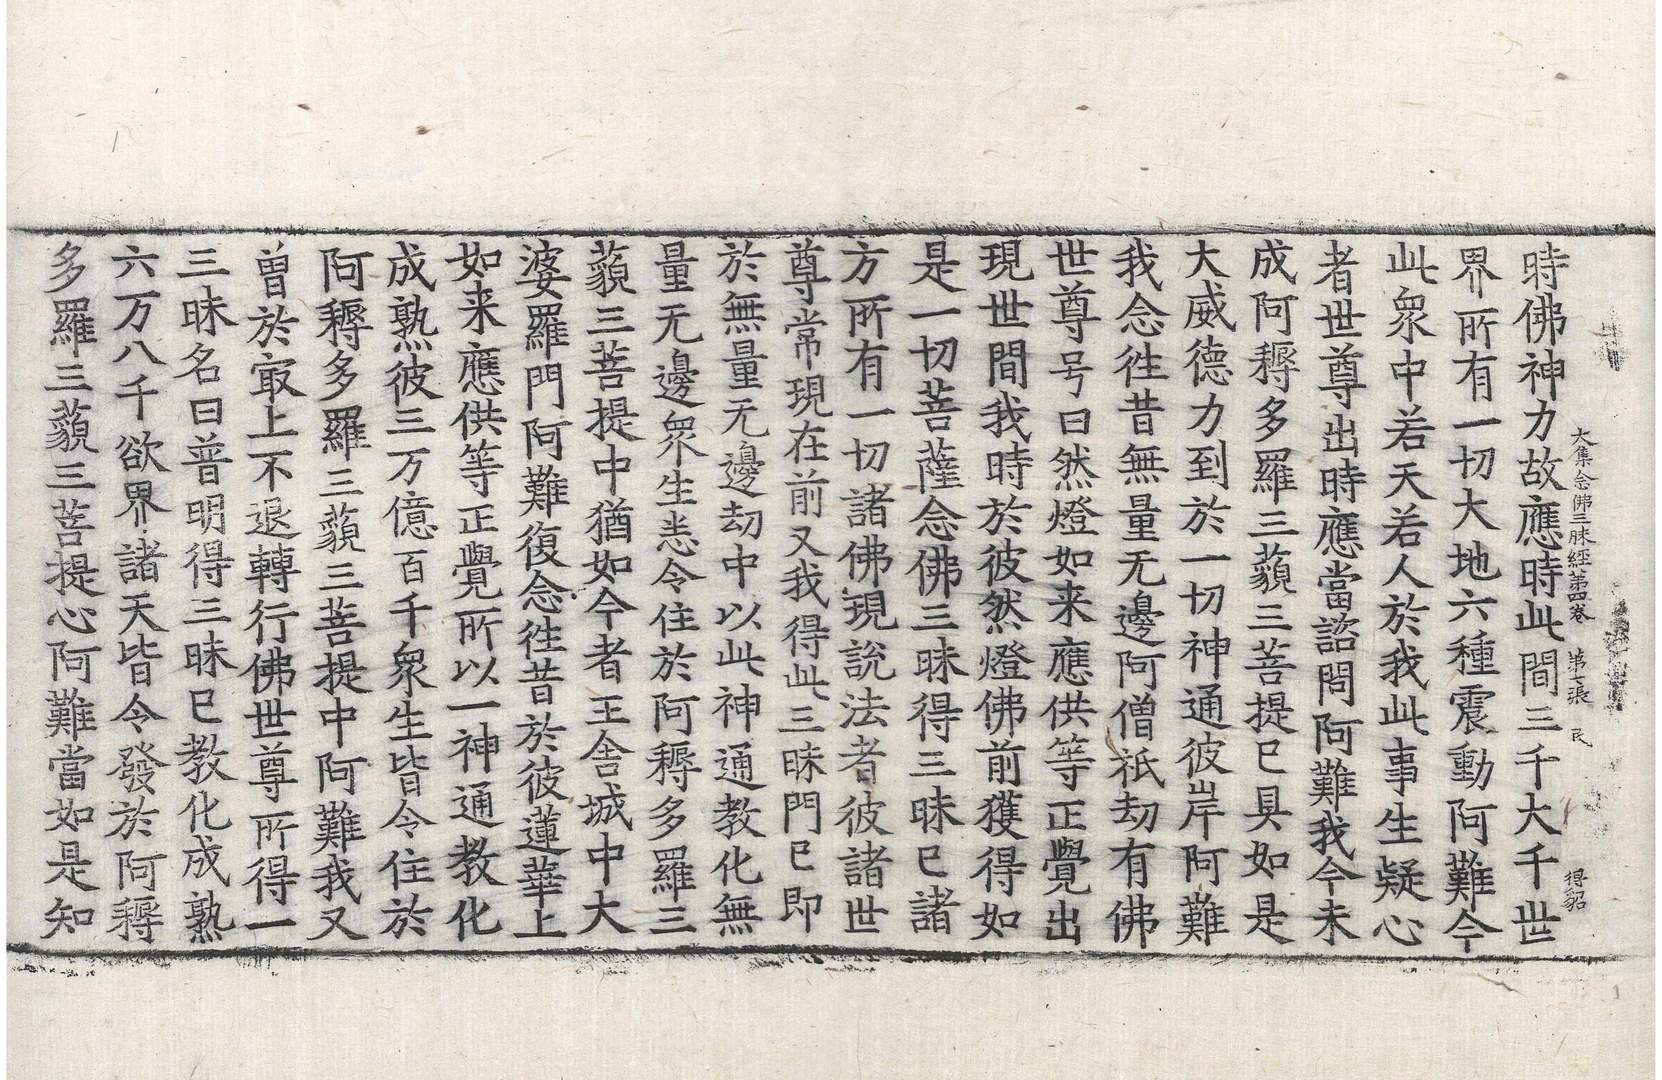 大集念佛三昧經第四卷　第七張　民　得韶
時佛神力故應時此間三千大千世
界所有一切大地六種震動阿難今
此衆中若天若人於我此事生疑心
者世尊出時應當諮問阿難我今未
成阿耨多羅三藐三菩提已具如是
大威德力到於一切神通彼岸阿難
我念徃昔無量无邊阿僧祇劫有佛
世尊号曰然燈如来應供等正覺出
現世間我時於彼然燈佛前獲得如
是一切菩薩念佛三昧得三昧已諸
方所有一切諸佛現說法者彼諸世
尊常現在前又我得此三昧門已即
於無量无邊劫中以此神通教化無
量无邊衆生悉令住於阿耨多羅三
藐三菩提中猶如今者王舍城中大
婆羅門阿難復念徃昔於彼蓮華上
如来應供等正覺所以一神通教化
成熟彼三万億百千衆生皆令住於
阿耨多羅三藐三菩提中阿難我又
曽於㝡上不退轉行佛世尊所得一
三昧名曰普明得三昧已教化成熟
六万八千欲界諸天皆令發於阿耨
多羅三藐三菩提心阿難當如是知